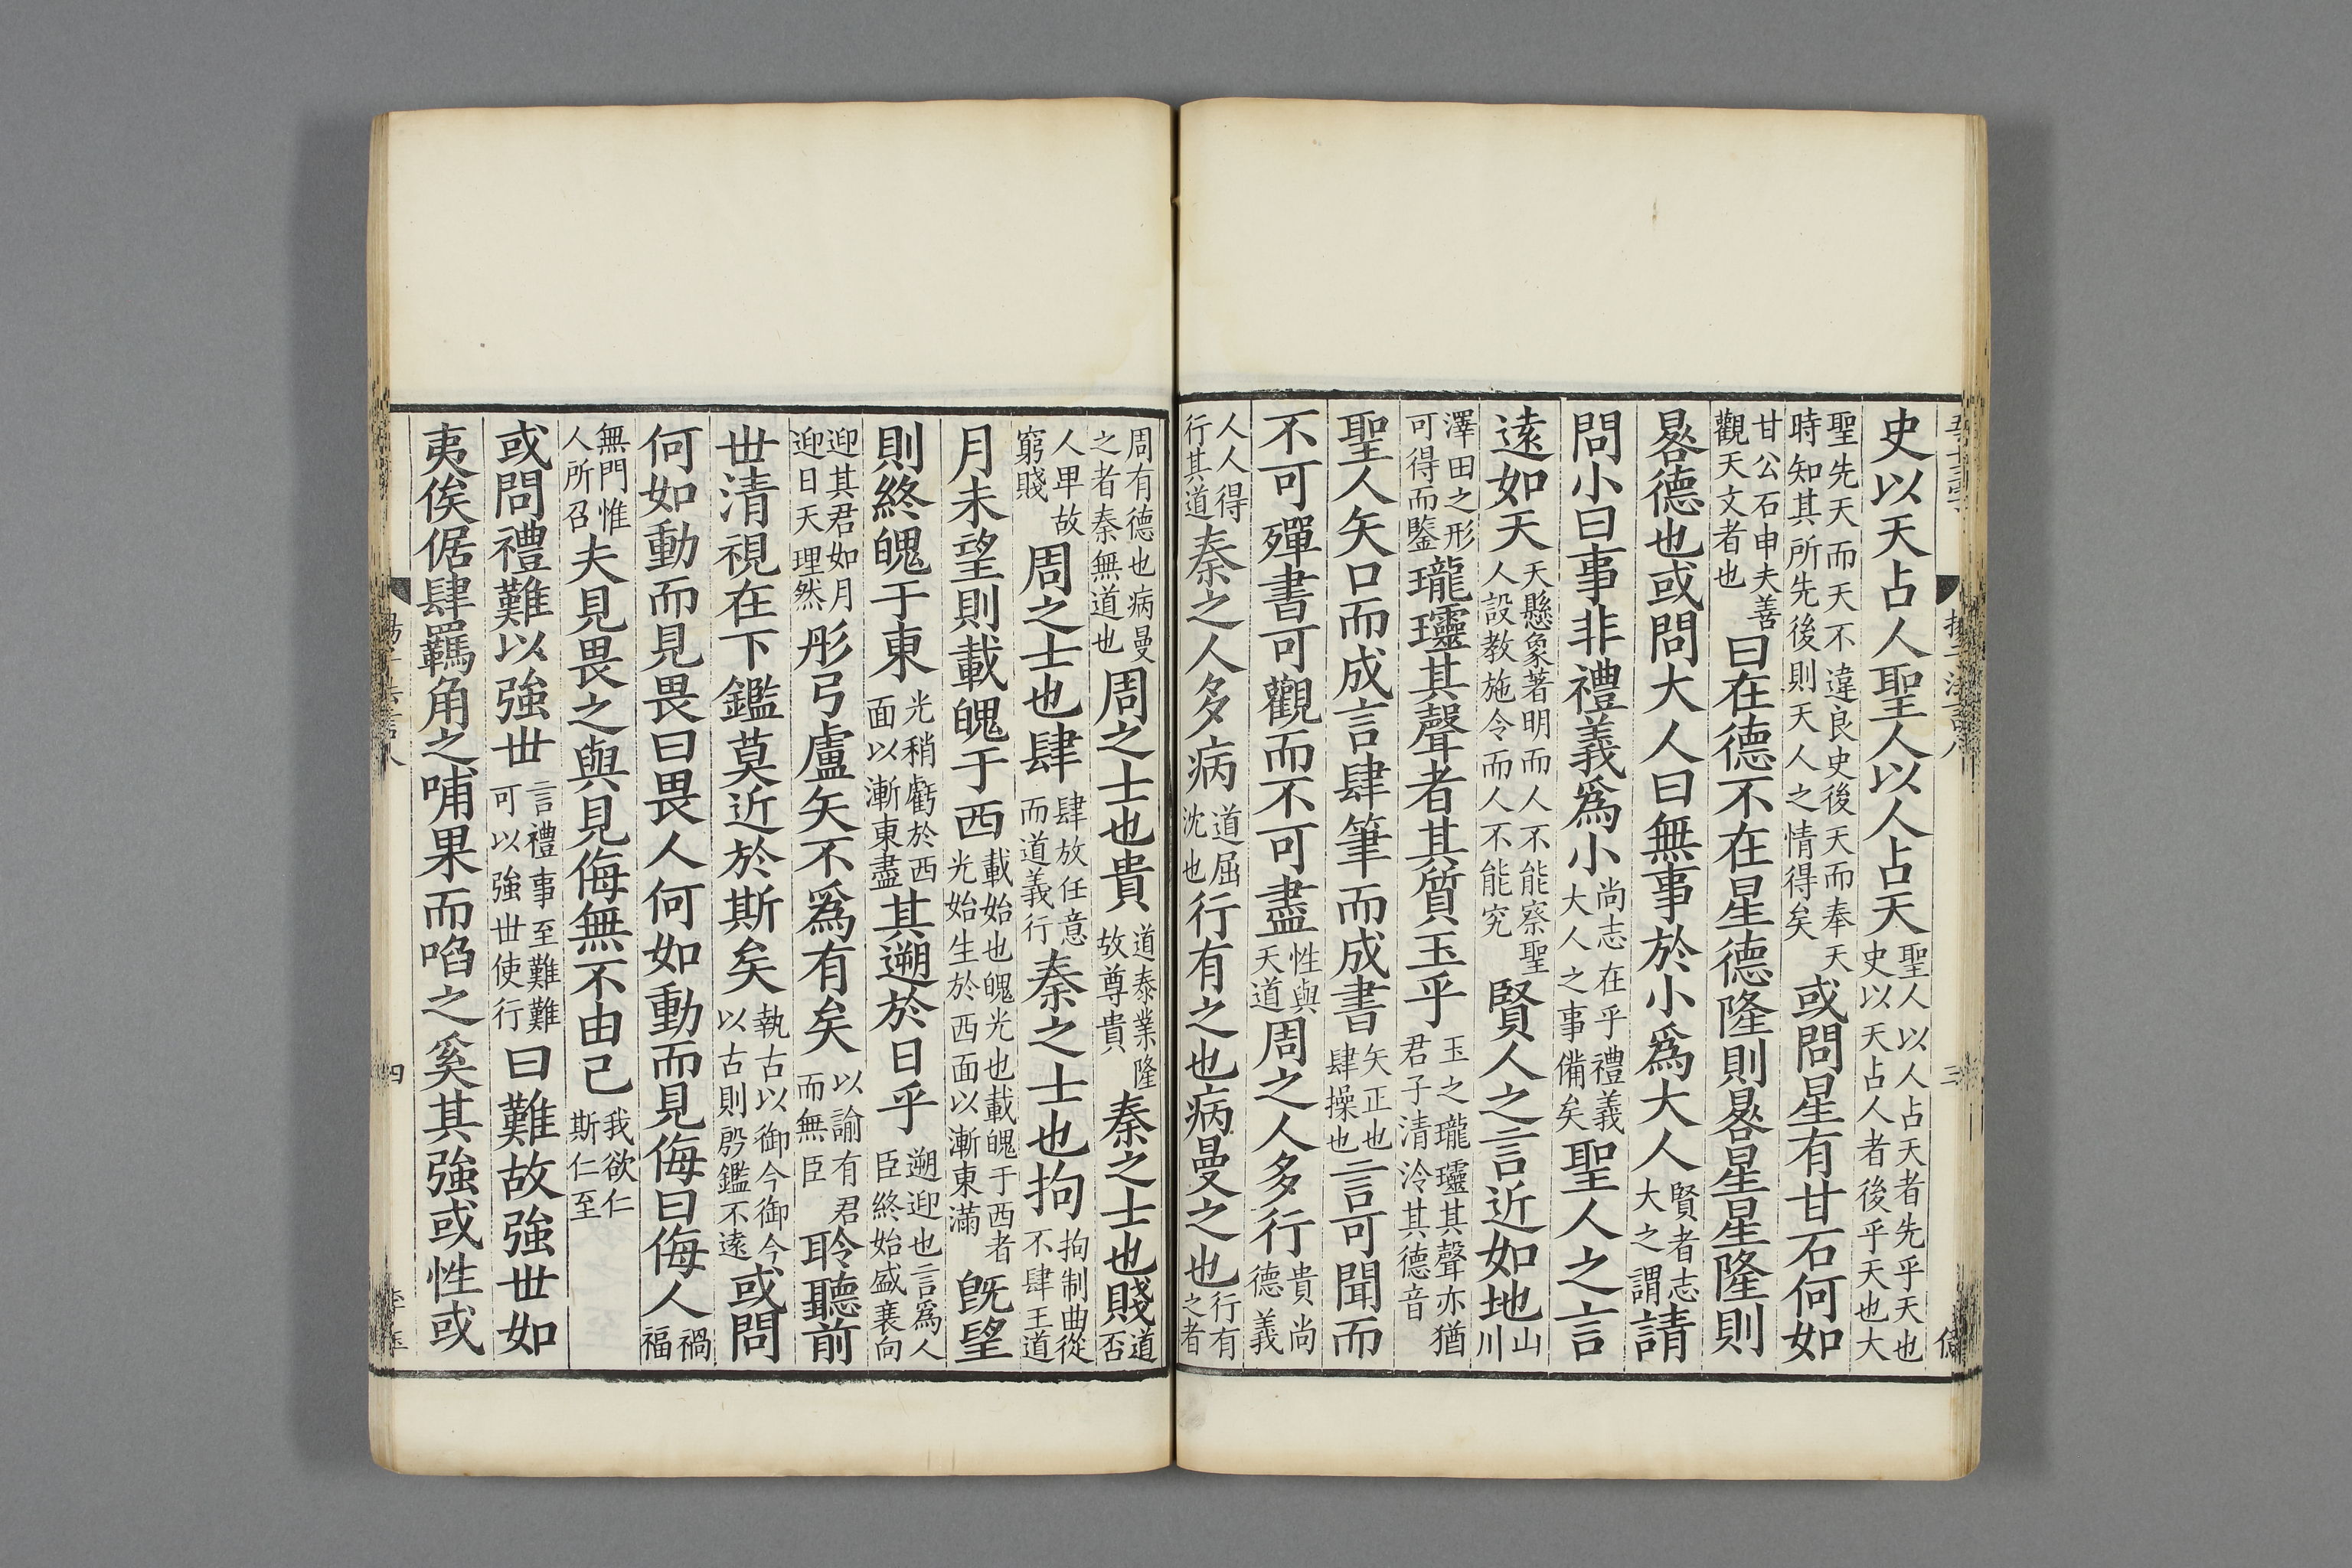 史以天占人聖人以人占天聖人以人占天者先乎天也史以天占人者後乎天也大
聖先天而天不違良史後天而奉天時知其所先後則天人之情得矣或問星有甘石何如
甘公石申夫善觀天文者也曰在德不在星德隆則晷星星隆則
晷德也或問大人曰無事於小爲大人賢者志大之謂請
問小曰事非禮義爲小尚志在乎禮義大人之事備矣聖人之言
遠如天天懸象著明而人不能察聖人設教施令而人不能究賢人之言近如地山川
澤田之形可得而鑒瓏𤫊其聲者其質玉乎玉之瓏𤫊其聲亦猶君子清泠其德音
聖人矢口而成言肆筆而成書矢正也肆操也言可聞而
不可殫書可觀而不可盡性與天道周之人多行貴尚德義
人人得行其道秦之人多病道屈沈也行有之也病曼之也行有之者
周有德也病曼之者秦無道也周之士也貴道泰業隆故尊貴秦之士也賤道否
人卑故窮賤周之士也肆肆放任意而道義行秦之士也拘拘制曲從不肆王道
月未望則載魄于西載始也魄光也載魄于西者光始生於西面以漸東滿旣望
則終魄于東光稍虧於西面以漸東盡其遡於日乎遡迎也言爲人臣終始盛衰向
迎其君如月迎日天理然彤弓盧矢不爲有矣以諭有君而無臣聆聽前
世清視在下鑑莫近於斯矣執古以御今御今以古則殷鑑不遠或問
何如動而見畏曰畏人何如動而見侮曰侮人禍福
無門惟人所召夫見畏之與見侮無不由己我欲仁斯仁至
或問禮難以強世言禮事至難難可以強世使行曰難故強世如
夷俟倨肆羈角之哺果而啗之奚其強或性或
揚子法言八
三
四